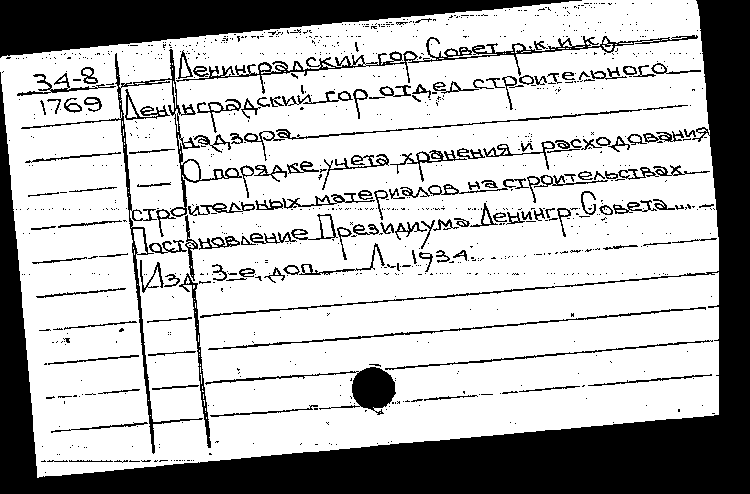 34-8 Ленинградский гор. Совет р.к. и к.д.
1769 Ленинградский гор. отдел строительного
надзора.
О порядке учета, хранения и расходования
строительных материалов на строительствах.
Постановление Президиума Ленингр. Совета...
Изд. 3-е, доп. Л., 1934.